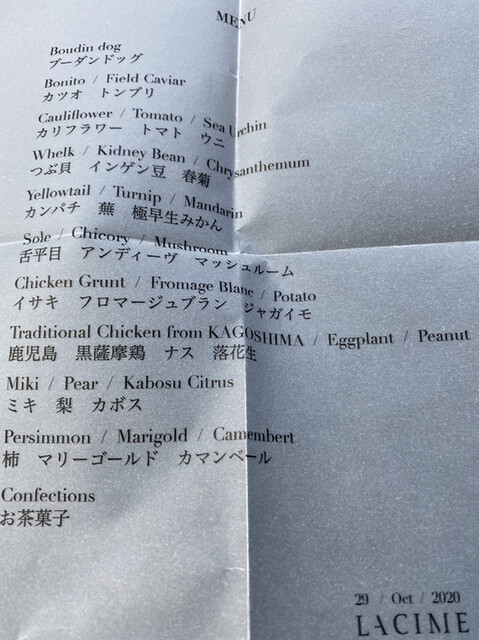 MENU
Boudin dog
ブーダンドッグ
Bonito / Field Caviar
カツオ トンブリ
Cauliflower / Tomato / Sea Urchin
カリフラワー トマト ウニ
Whelk / Kidney Bean / Chrysanthemum
つぶ貝 インゲン豆 春菊
Yellowtail / Turnip / Mandarin
カンパチ 蕪 極早生みかん
Sole / Chicory / Mushroom
舌平目 アンディーヴ マッシュルーム
Chicken Grunt / Fromage Blanc / Potato
イサキ フロマージュブラン ジャガイモ
Traditional Chicken from KAGOSHIMA / Eggplant / Peanut
鹿児島 黒薩摩鶏 ナス 落花生
Miki / Pear / Kabosu Citrus
ミキ 梨 カボス
Persimmon / Marigold / Camembert
柿 マリーゴールド カマンベール
Confections
お茶菓子
29 / Oct / 2020
LACIME